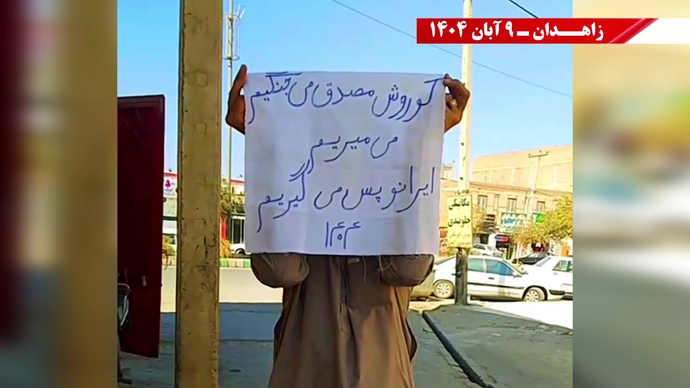 زاهـــدان ــ ۹ آبان ۱۴۰۴
کوروش مصدق می جنگیم
می میریم
ایرانو پس می گیریم
۱۴۰۴
مکانیکی
جلوبندی